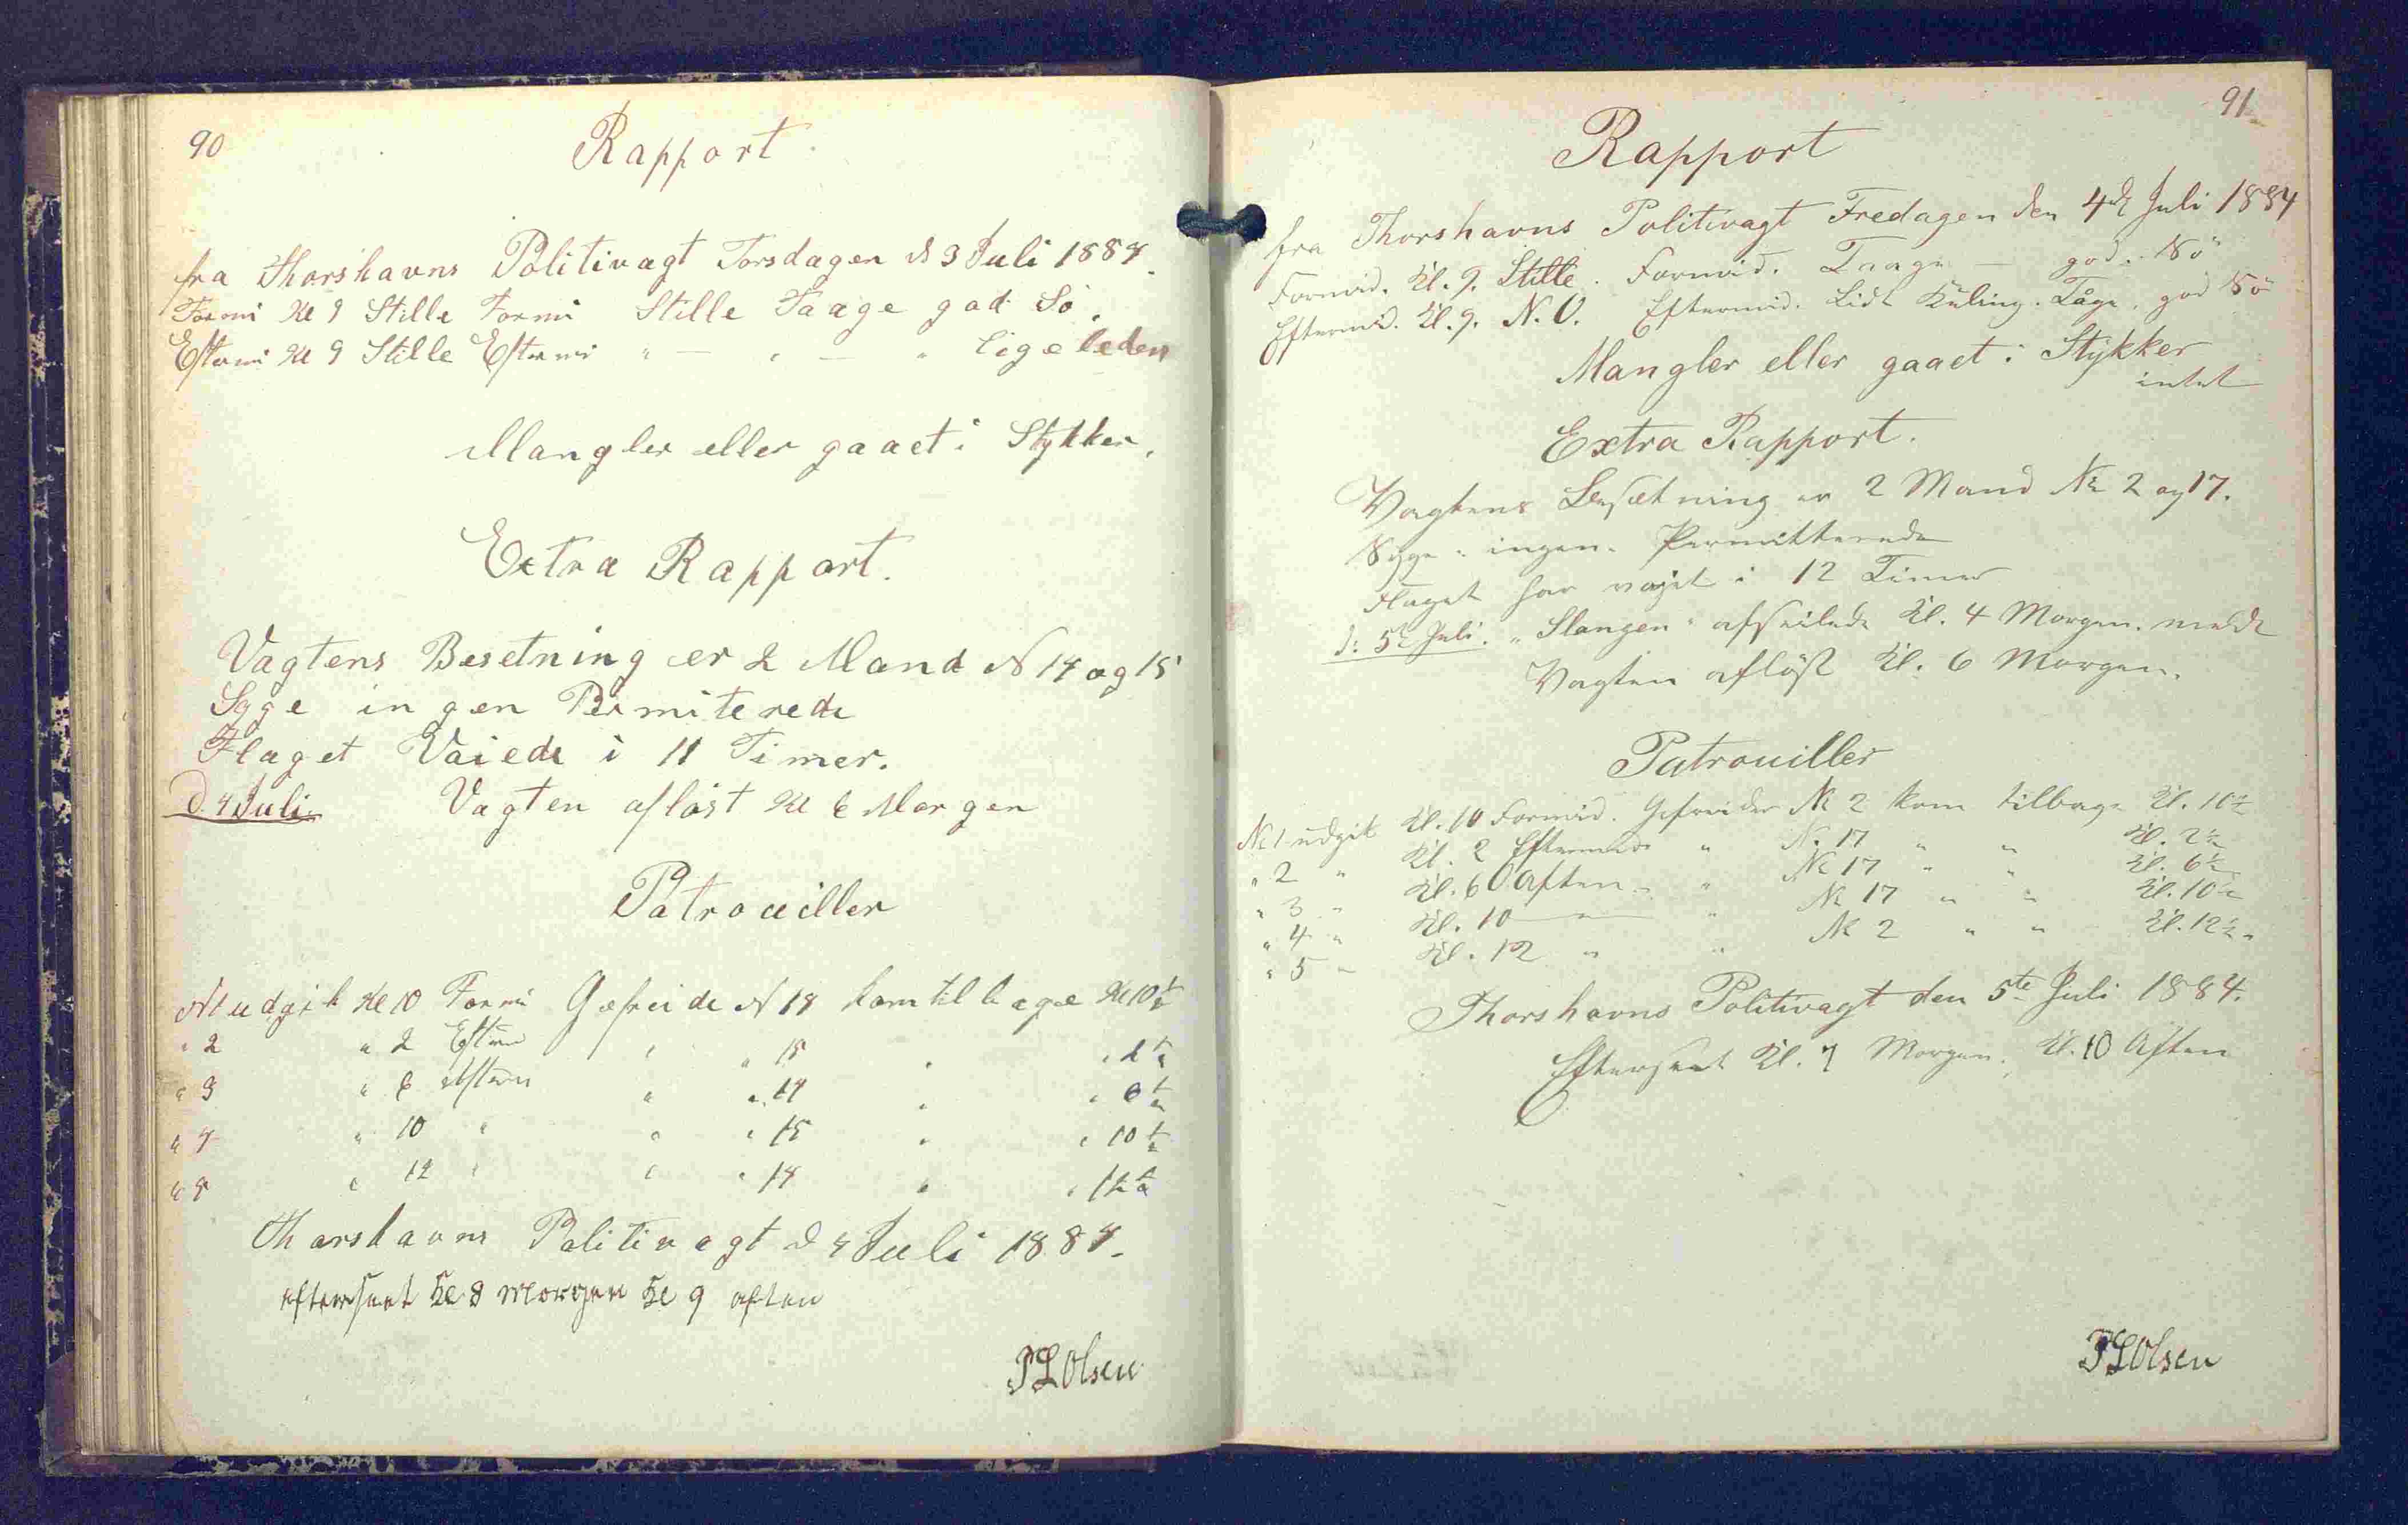 90
Rapport
fra Thorshavns Politivagt Torsdagen d 3 Juli 1884
Formi Kl 9 Stille Formi Stille Taage god Sö.
Eftermi Kl 9 Stille Eftermi " — " — " ligeledes
Mangler eller gaaet i Stykker.
Extra Rapport.
Vagtens Besetning er 2 Mand N 14 og 15
Syge ingen Permiterede
Flaget Vaiede i 11 Timer.
D. 4 Juli. Vagten aflöst Kl 6 Morgen
Patrouiller
N1 udgik Kl 10 Formi Gefreide N 14 kom tilbage Kl 10 1/2
" 2 " 2 Efterm " " 15 " " 2 1/2
" 3 " 6 Efterm " " 14 " " 6 1/2
" 4 " 10 " " " 15 " " 10 1/2
" 5 " 12 " " " 14 " " 12 1/2
Thorshavns Politivagt d 4 Juli 1884.
efterseet Kl 8 Morgen Kl 9 aften
PL Olsen
91
Rapport
fra Thorshavns Politivagt Fredagen den 4de Juli 1884
Formid. Kl. 9. Stille. Formid. Taage — god. Sö
Eftermid. Kl. 9. N.O. Eftermid. Lidt Kuling. Tåge. god Sö
Mangler eller gaaet i Stykker
intet
Extra Rapport.
Vagtens Besætning er 2 Mand No 2 og 17.
Syge ingen. Permitterede
Flaget har vajet i 12 Timer
d: 5te Juli. "Slangen" afseilede Kl. 4 Morgen. meldt
Vagten aflöst Kl. 6 Morgen.
Patrouiller
No 1 udgik Kl. 10 Formid. Gefreider No 2 kom tilbage Kl. 10 1/2
" 2 " Kl. 2 Eftermid. " No. 17 " " Kl. 2 1/2
" 3 " Kl. 6 Aften " No 17 " " Kl. 6 1/2
" 4 " Kl. 10 — " — " No 17 " " Kl. 10 1/2
" 5 " Kl. 12 " " No 2 " " Kl. 12 1/2.
Thorshavns Politivagt den 5te Juli 1884.
Efterseet Kl. 7 Morgen. Kl. 10 Aften
PL Olsen